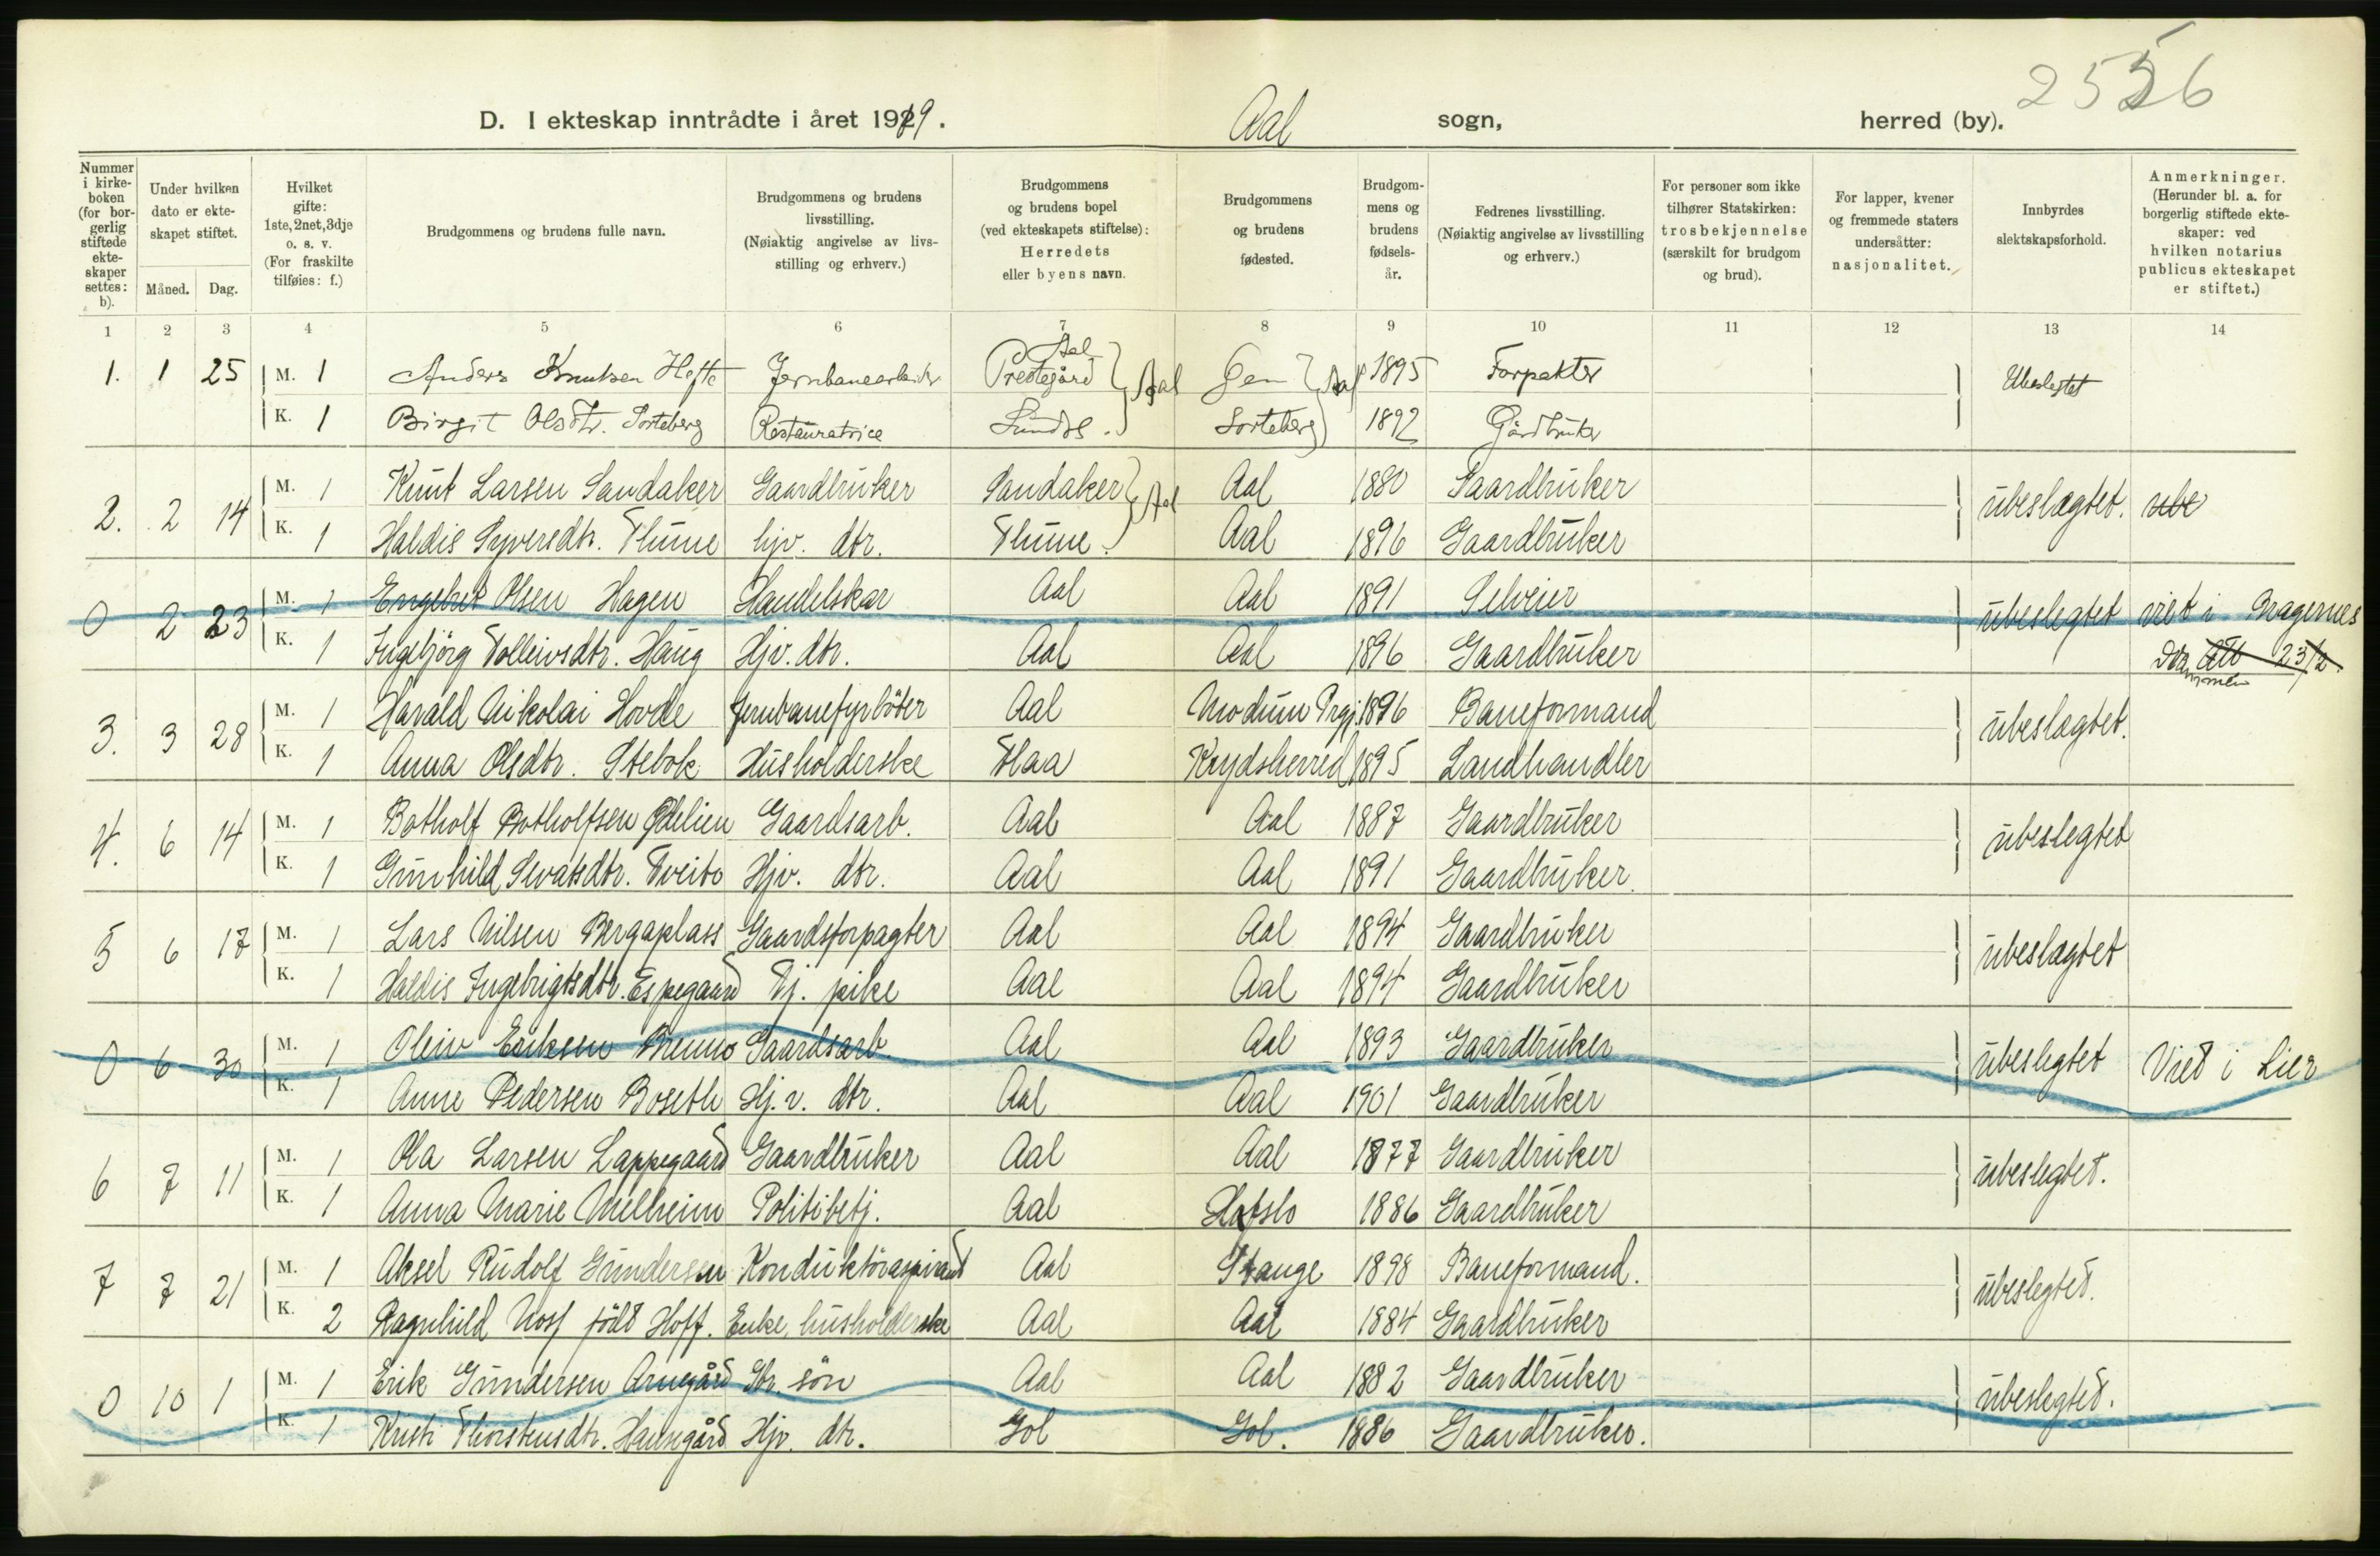 2556
D. I ekteskap inntrådte i året 1919. Aal sogn, herred (by).
Nummer i kirkeboken (for borgerlig stiftede ekteskaper settes: b).
Under hvilken dato er ekteskapet stiftet.
Måned. Dag.
Hvilket gifte: 1ste, 2net, 3dje o. s. v. (For fraskilte tilføies: f.)
Brudgommens og brudens fulle navn.
Brudgommens og brudens livsstilling. (Nøiaktig angivelse av livsstilling og erhverv.)
Brudgommens og brudens bopel (ved ekteskapets stiftelse): Herredets eller byens navn.
Brudgommens og brudens fødested.
Brudgommens og brudens fødselsår.
Fedrenes livsstilling. (Nøiaktig angivelse av livsstilling og erhverv.)
For personer som ikke tilhører Statskirken: trosbekjennelse (særskilt for brudgom og brud).
For lapper, kvener og fremmede staters undersåtter: nasjonalitet.
Innbyrdes slektskapsforhold.
Anmerkninger. (Herunder bl. a. for borgerlig stiftede ekteskaper: ved hvilken notarius publicus ekteskapet er stiftet.)
1 2 3 4 5 6 7 8 9 10 11 12 13 14
1. 1 25 M. 1 Anders Knutsen Hefte Jernbanearbeider Aal Prestegård Aal Gen Aal 1895 Forpakter Ubeslegtet
K. 1 Birgit Olsdtr. Sorteberg Restauratrice Sundre. Sorteberg 1892 Gårdbruker
2. 2 14 M. 1 Knut Larsen Sandaker Gaardbruker Sandaker Aal Aal 1880 Gaardbruker ubeslægtet. ube
K. 1 Haldis Syversdtr. Thume hjv. dtr. Thume. Aal 1896 Gaardbruker
0 2 23 M. 1 Engebret Olsen Hagen Handelskar Aal Aal 1891 Selveier ubeslegtet viet i Bragernes
K. 1 Ingebjörg Tolleivsdtr. Haug Hjv. dtr. Aal Aal 1896 Gaardbruker Drammen 23/2.
3. 3 28 M. 1 Harald Nikolai Hovde Jernbanefyrböter Aal Modum Prgj. 1896 Baneformand ubeslægtet.
K. 1 Anna Olsdtr. Stebok Husholderske Flaa Krydsherred 1895 Landhandler
4. 6 14 M. 1 Botholf Botholfsen Ødelien Gaardsarb. Aal Aal 1887 Gaardbruker ubeslegtet
K. 1 Gunhild Sevatsdtr. Tveito Hjv. dtr. Aal Aal 1891 Gaardbruker.
5 6 17 M. 1 Lars Nilsen Bergaplass Gaardsforpagter Aal Aal 1894 Gaardbruker ubeslægtet
K. 1 Haldis Ingebrigtsdtr. Espegaard Tj. pike Aal Aal 1894 Gaardbruker
0 6 30 M. 1 Oleiv Eriksen Brenno Gaardsarb. Aal Aal 1893 Gaardbruker ubeslegtet Viet i Lier
K. 1 Anne Pedersen Boseth Hj. v. dtr. Aal Aal 1901 Gaardbruker
6 7 11 M. 1 Ola Larsen Lappegaard Gaardbruker Aal Aal 1877 Gaardbruker ubeslegtet.
K. 1 Anna Marie Melheim Politibetj. Aal Hafslo 1886 Gaardbruker
7 7 21 M. 1 Aksel Rudolf Gundersen Konduktöraspirant Aal Stange 1898 Baneformand. ubeslegtet.
K. 2 Ragnhild Nosf født Hoff. Enke, husholderske Aal Aal 1884 Gaardbruker
0 10 1 M. 1 Erik Gundersen Arnegård Gbr. sön Aal Aal 1882 Gaardbruker ubeslegtet.
K. 1 Kristi Thorstensdtr. Hausegård Hjv. dtr. Gol Gol. 1886 Gaardbruker.